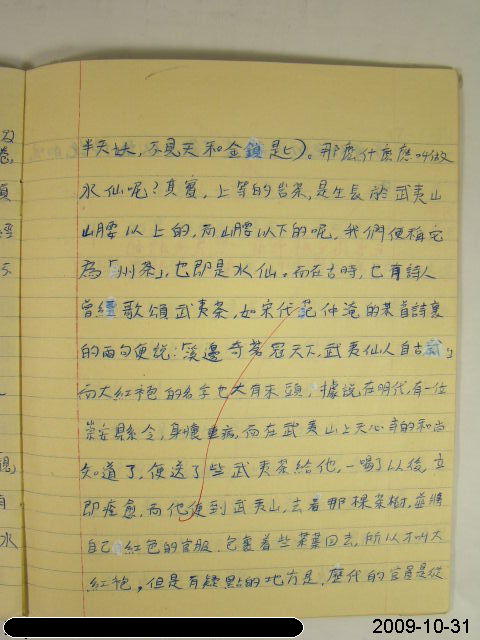 半天妖,不見天和金鎖是匕)。那麼什麼應叫做
水仙呢?其實,上等的岩茶,是生長於武夷山
山腰以上的,而山腰以下的呢,我們便稱它
為「州茶」,也即是水仙。而在古時,也有詩人
曾經歌頌武夷茶,如宋代范仲淹的某首詩裏
的兩句便說:「溪邊奇茗冠天下,武夷仙人自古栽」
而大紅袍的名字也大有來頭,據說在明代,有一位
崇安縣令,身壞重病,而在武夷山上天心寺的和尚
知道了,便送了些武夷茶給他,一喝了以後,立
即痊愈,而他便到武夷山,去看那棵茶樹,並將
自己紅色的官服,包裹着些茶葉回去,所以才叫大
紅袍。但是有疑點的地方是,歷代的官員是從
卷,
頭
經
水
2009-10-31